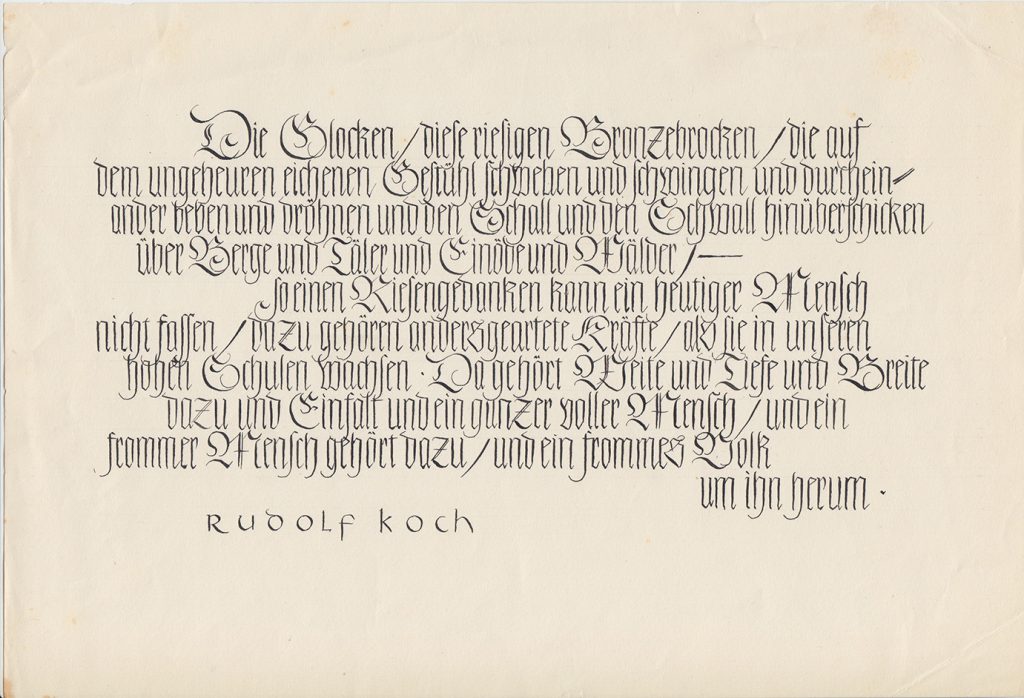 Die Glocken / diese riesigen Bronzebrocken / die auf
dem ungeheuren eichenen Gestühl schweben und schwingen und durchein-
ander beben und dröhnen und den Schall und den Schwall hinüberschicken
über Berge und Täler und Einöde und Wälder / —
so einen Riesengedanken kann ein heutiger Mensch
nicht fassen / dazu gehören andersgeartete Kräfte / als sie in unseren
hohen Schulen wachsen · Da gehört Weite und Tiefe und Breite
dazu und Einfalt und ein ganzer voller Mensch / und ein
frommer Mensch gehört dazu / und ein frommes Volk
um ihn herum ·
RUDOLF KOCH